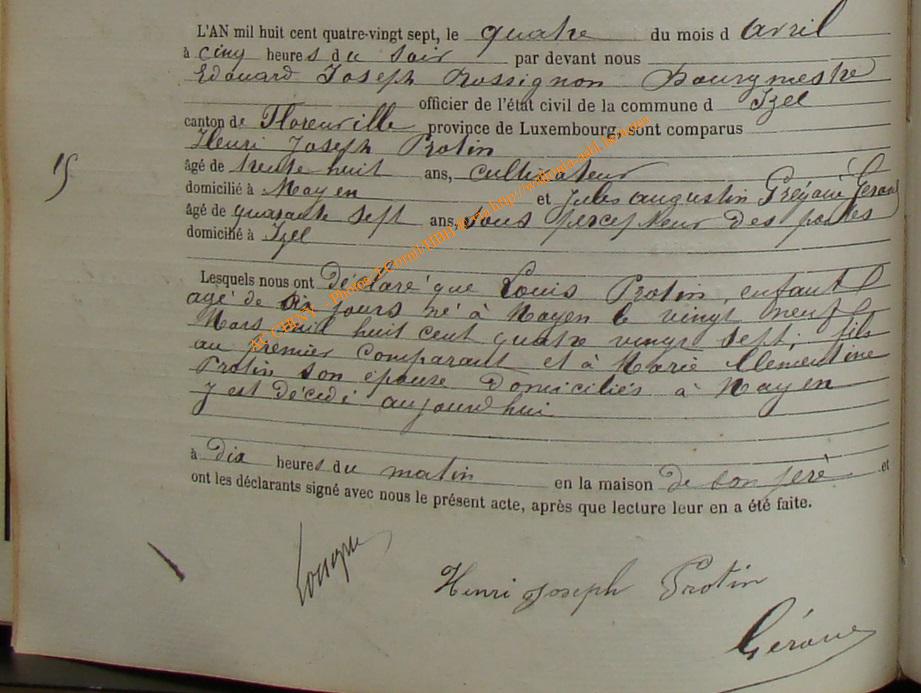 L'AN mil huit cent quatre-vingt sept, le quatre du mois d avril
à cinq heures du soir par devant nous
Edouard Joseph Rossignon Bourgmestre
officier de l'état civil de la commune d Izel
canton de Florenville province de Luxembourg, sont comparus
Henri Joseph Protin
âgé de trente huit ans, cultivateur
domicilié à Moyen et Jules augustin Grégoire
âgé de quarante sept ans, sous percepteur des postes
domicilié à Izel
15
Lesquels nous ont déclaré que Louis Protin, enfant
agé de six jours né à Moyen le vingt neuf
Mars mil huit cent quatre vingt sept, fils
au premier comparant et à Marie Clementine
Protin son épouse domiciliés à Moyen
y est décédé aujourd'hui
à dix heures du matin en la maison de son père et
ont les déclarants signé avec nous le présent acte, après que lecture leur en a été faite.
Henri Joseph Protin